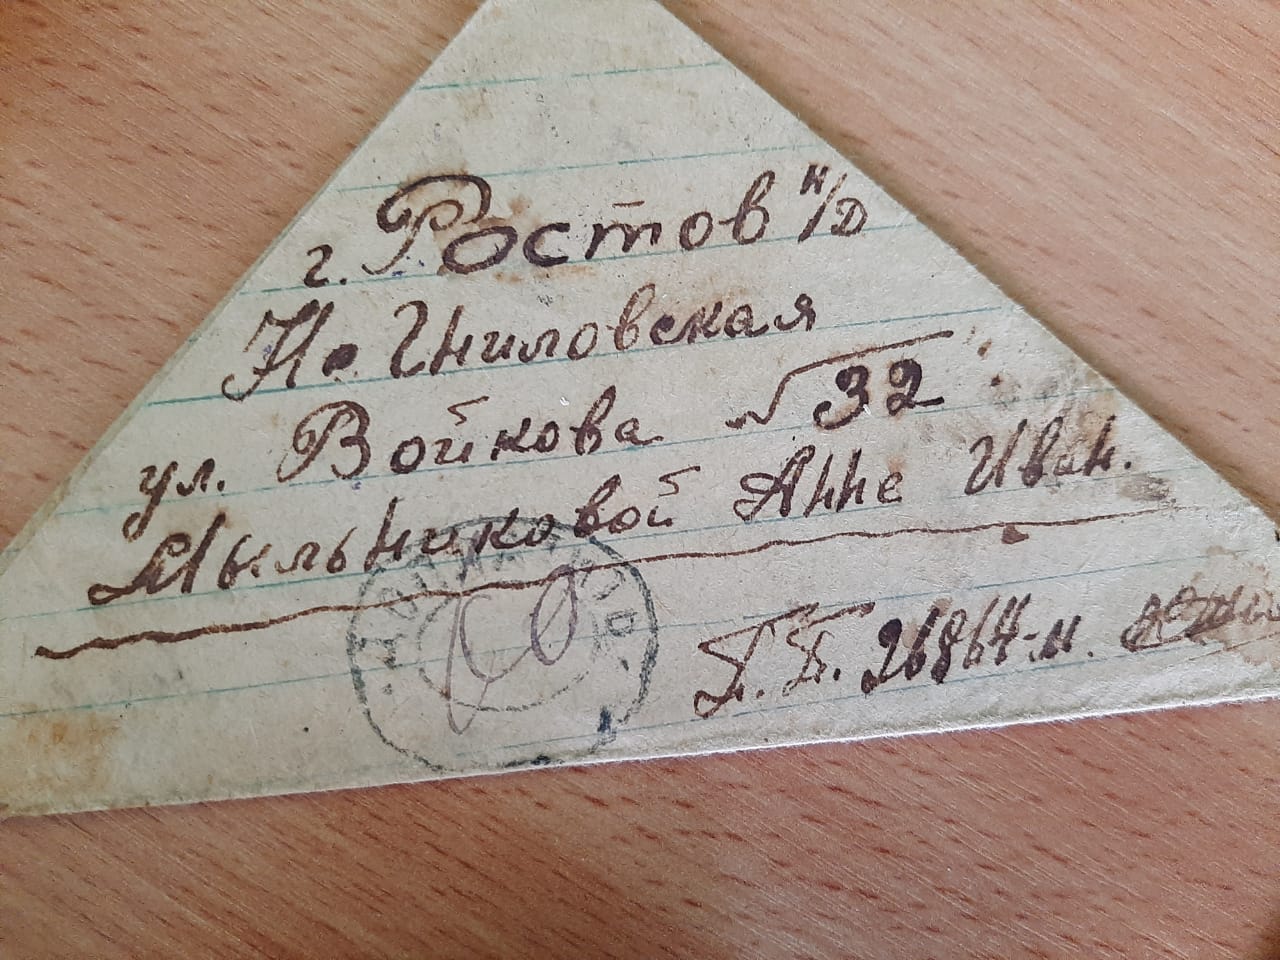 г. Ростов н/Д
Не Гниловская
ул. Войкова 32
Мыльниковой Анне Иван.
П.П. 26864-м.